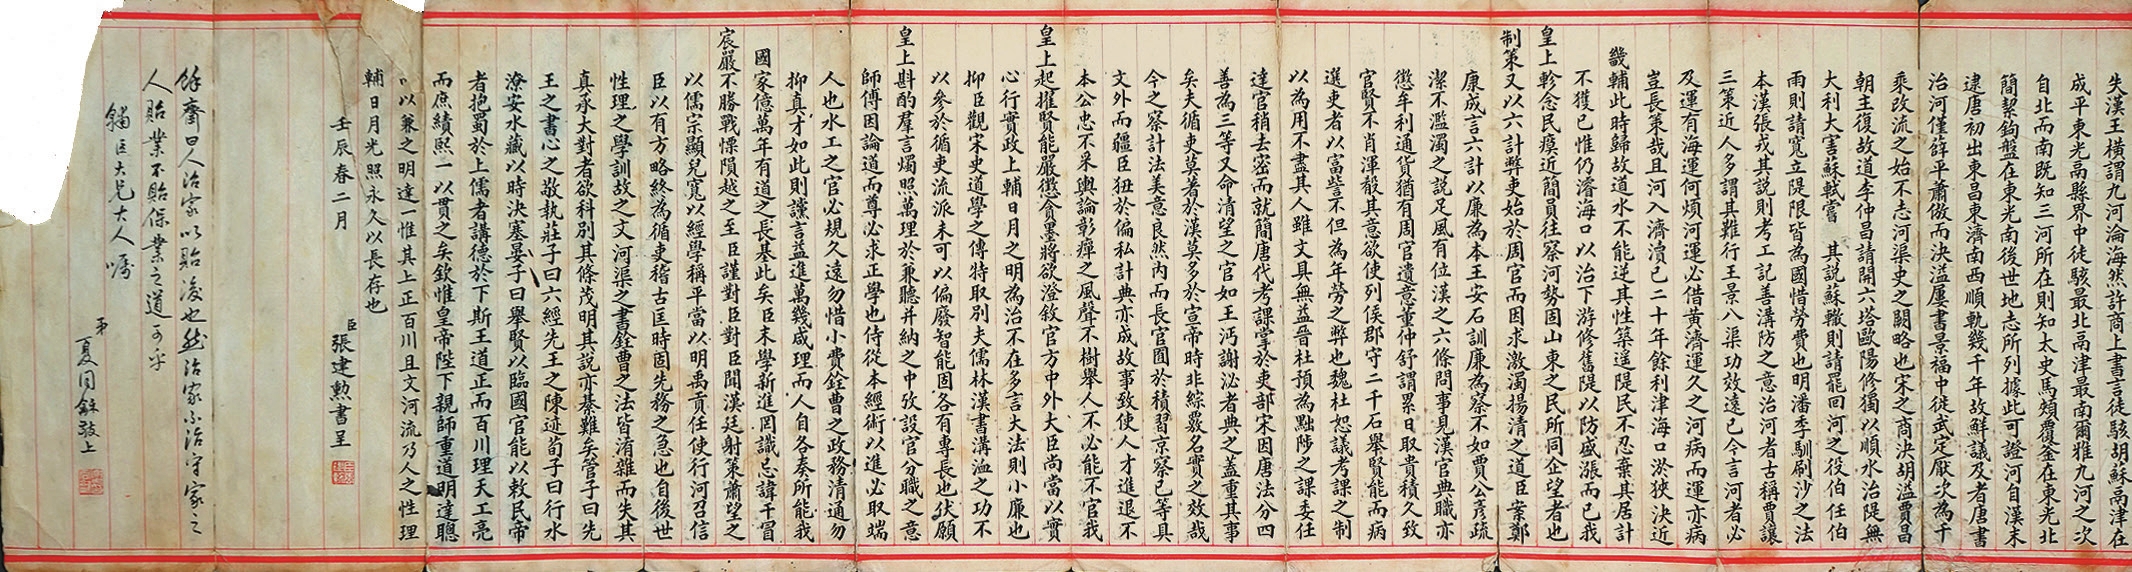 失漢王橫謂九河淪海然許商上書言徒駭胡蘇鬲津在
成平東光鬲縣界中徒駭最北鬲津最南爾雅九河之次
自北而南既知三河所在則知太史馬頰覆釜在東光北
簡絜鉤盤在東光南後世地志所列據此可證河自漢末
逮唐初出東昌東濟南西順軌幾千年故鮮議及者唐書
治河僅薛平蕭倣而決溢屢書景福中徙武定厭次為千
乘改流之始不志河渠史之闕略也宋之商決胡溢賈昌
朝主復故道李仲昌請開六塔歐陽修獨以順水治隄無
大利大害蘇軾嘗其說蘇轍則請罷回河之役伯任伯
雨則請寬立隄限皆為國惜勞費也明潘季馴刷沙之法
本漢張戎其說則考工記善溝防之意治河者古稱賈讓
三策近人多謂其難行王景八渠功效遠已今言河者必
及運有海運何煩河運必借黃濟運久之河病而運亦病
豈長策哉且河入濟瀆已二十年餘利津海口淤狹決近
幾輔此時歸故道水不能逆其性築遙隄民不忍棄其居計
不獲已惟仍濬海口以治下游修舊隄以防盛漲而已我
皇上軫念民瘼近簡員往察河勢固山東之民所同企望者也
制策又以六計弊吏始於周官而因求激濁揚清之道臣案鄭
康成言六計以廉為本王安石訓廉為察不如賈公彥疏
潔不濫濁之說足風有位漢之六條問事見漢官典職亦
懲牟利通貨猶有周官遺意董仲舒謂累日取貴積久致
官賢不肖渾殽其意欲使列侯郡守二千石舉賢能而病
選吏者以富訾不但為年勞之弊也魏杜恕議考課之制
以為用不盡其人雖文具無益晉杜預為黜陟之課委任
達官稍去密而就簡唐代考課掌於吏部宋因唐法分四
善為三等又命清望之官如王沔謝泌者典之蓋重其事
矣夫循吏莫著於漢莫多於宣帝時非綜覈名實之效哉
今之察計法美意良然內而長官囿於積習京察已等具
文外而疆臣狃於偏私計典亦成故事致使人才進退不
本公忠不采輿論彰癉之風聲不樹舉人不必能不官我
皇上起擢賢能嚴懲貪墨將欲澄敘官方中外大臣尚當以實
心行實政上輔日月之明為治不在多言大法則小廉也
抑臣觀宋史道學之傳特取別夫儒林漢書溝洫之功不
以參於循吏流派未可以偏廢智能固各有專長也伏願
皇上斟酌羣言燭照萬理於兼聽並納之中攷設官分職之意
師傅因論道而尊必求正學也侍從本經術以進必取端
人也水工之官必規久遠勿惜小費銓曹之政務清通勿
抑真才如此則讜言益進萬幾咸理而人自各奏所能我
國家億萬年有道之長基此矣臣末學新進罔識忌諱干冒
宸嚴不勝戰慄隕越之至臣謹對臣對臣聞漢廷射策蕭望之
以儒宗顯兒寬以經學稱平當以明禹貢任使行河召信
臣以有方略終為循吏稽古匡時固先務之急也自後世
性理之學訓故之文河渠之書銓曹之法皆淆雜而失其
真承大對者欲科別其條茂明其說亦綦難矣管子曰先
王之書心之敬執莊子曰六經先王之陳迹荀子曰行水
潦安水藏以時決塞晏子曰舉賢以臨國官能以敕民帝
者抱蜀於上儒者講德於下斯王道正而百川理天工亮
而庶績熙一以貫之矣欽惟皇帝陛下親師重道明達聰
以兼之明達一惟其上正百川且文河流乃人之性理
輔日月光照永久以長存也
壬辰春二月
臣張建勲書呈
餘齋曰人治家以貽後也然治家不治守家之
人貽業不貽保業之道可乎
臣大兄大人囑
弟夏同龢敬上